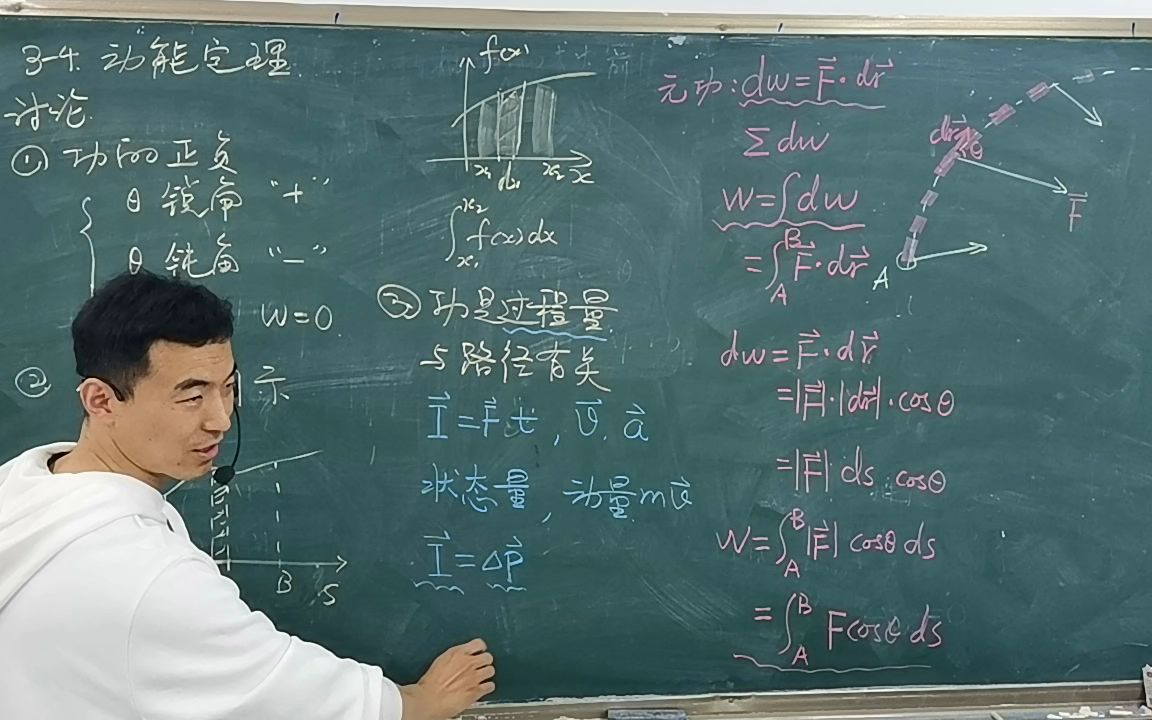 3-4. 动能定理
讨论
① 功的正负
θ 锐角 "+"
θ 钝角 "—"
W=0
②
示
B S
f(x)
x₁ dx x₂ x
∫x₁x₂ f(x)dx
③ 功是过程量
与路径有关
I⃗=F⃗t, v⃗. a⃗
状态量, 动量mv⃗
I⃗=Δp⃗
元功: dw=F⃗·dr⃗
Σdw
W=∫dw
=∫AB F⃗·dr⃗
dw=F⃗·dr⃗
=|F⃗|·|dr⃗|·cosθ
=|F⃗| ds cosθ
W=∫AB |F⃗| cosθ ds
=∫AB Fcosθ ds
dr⃗ θ
F⃗
A